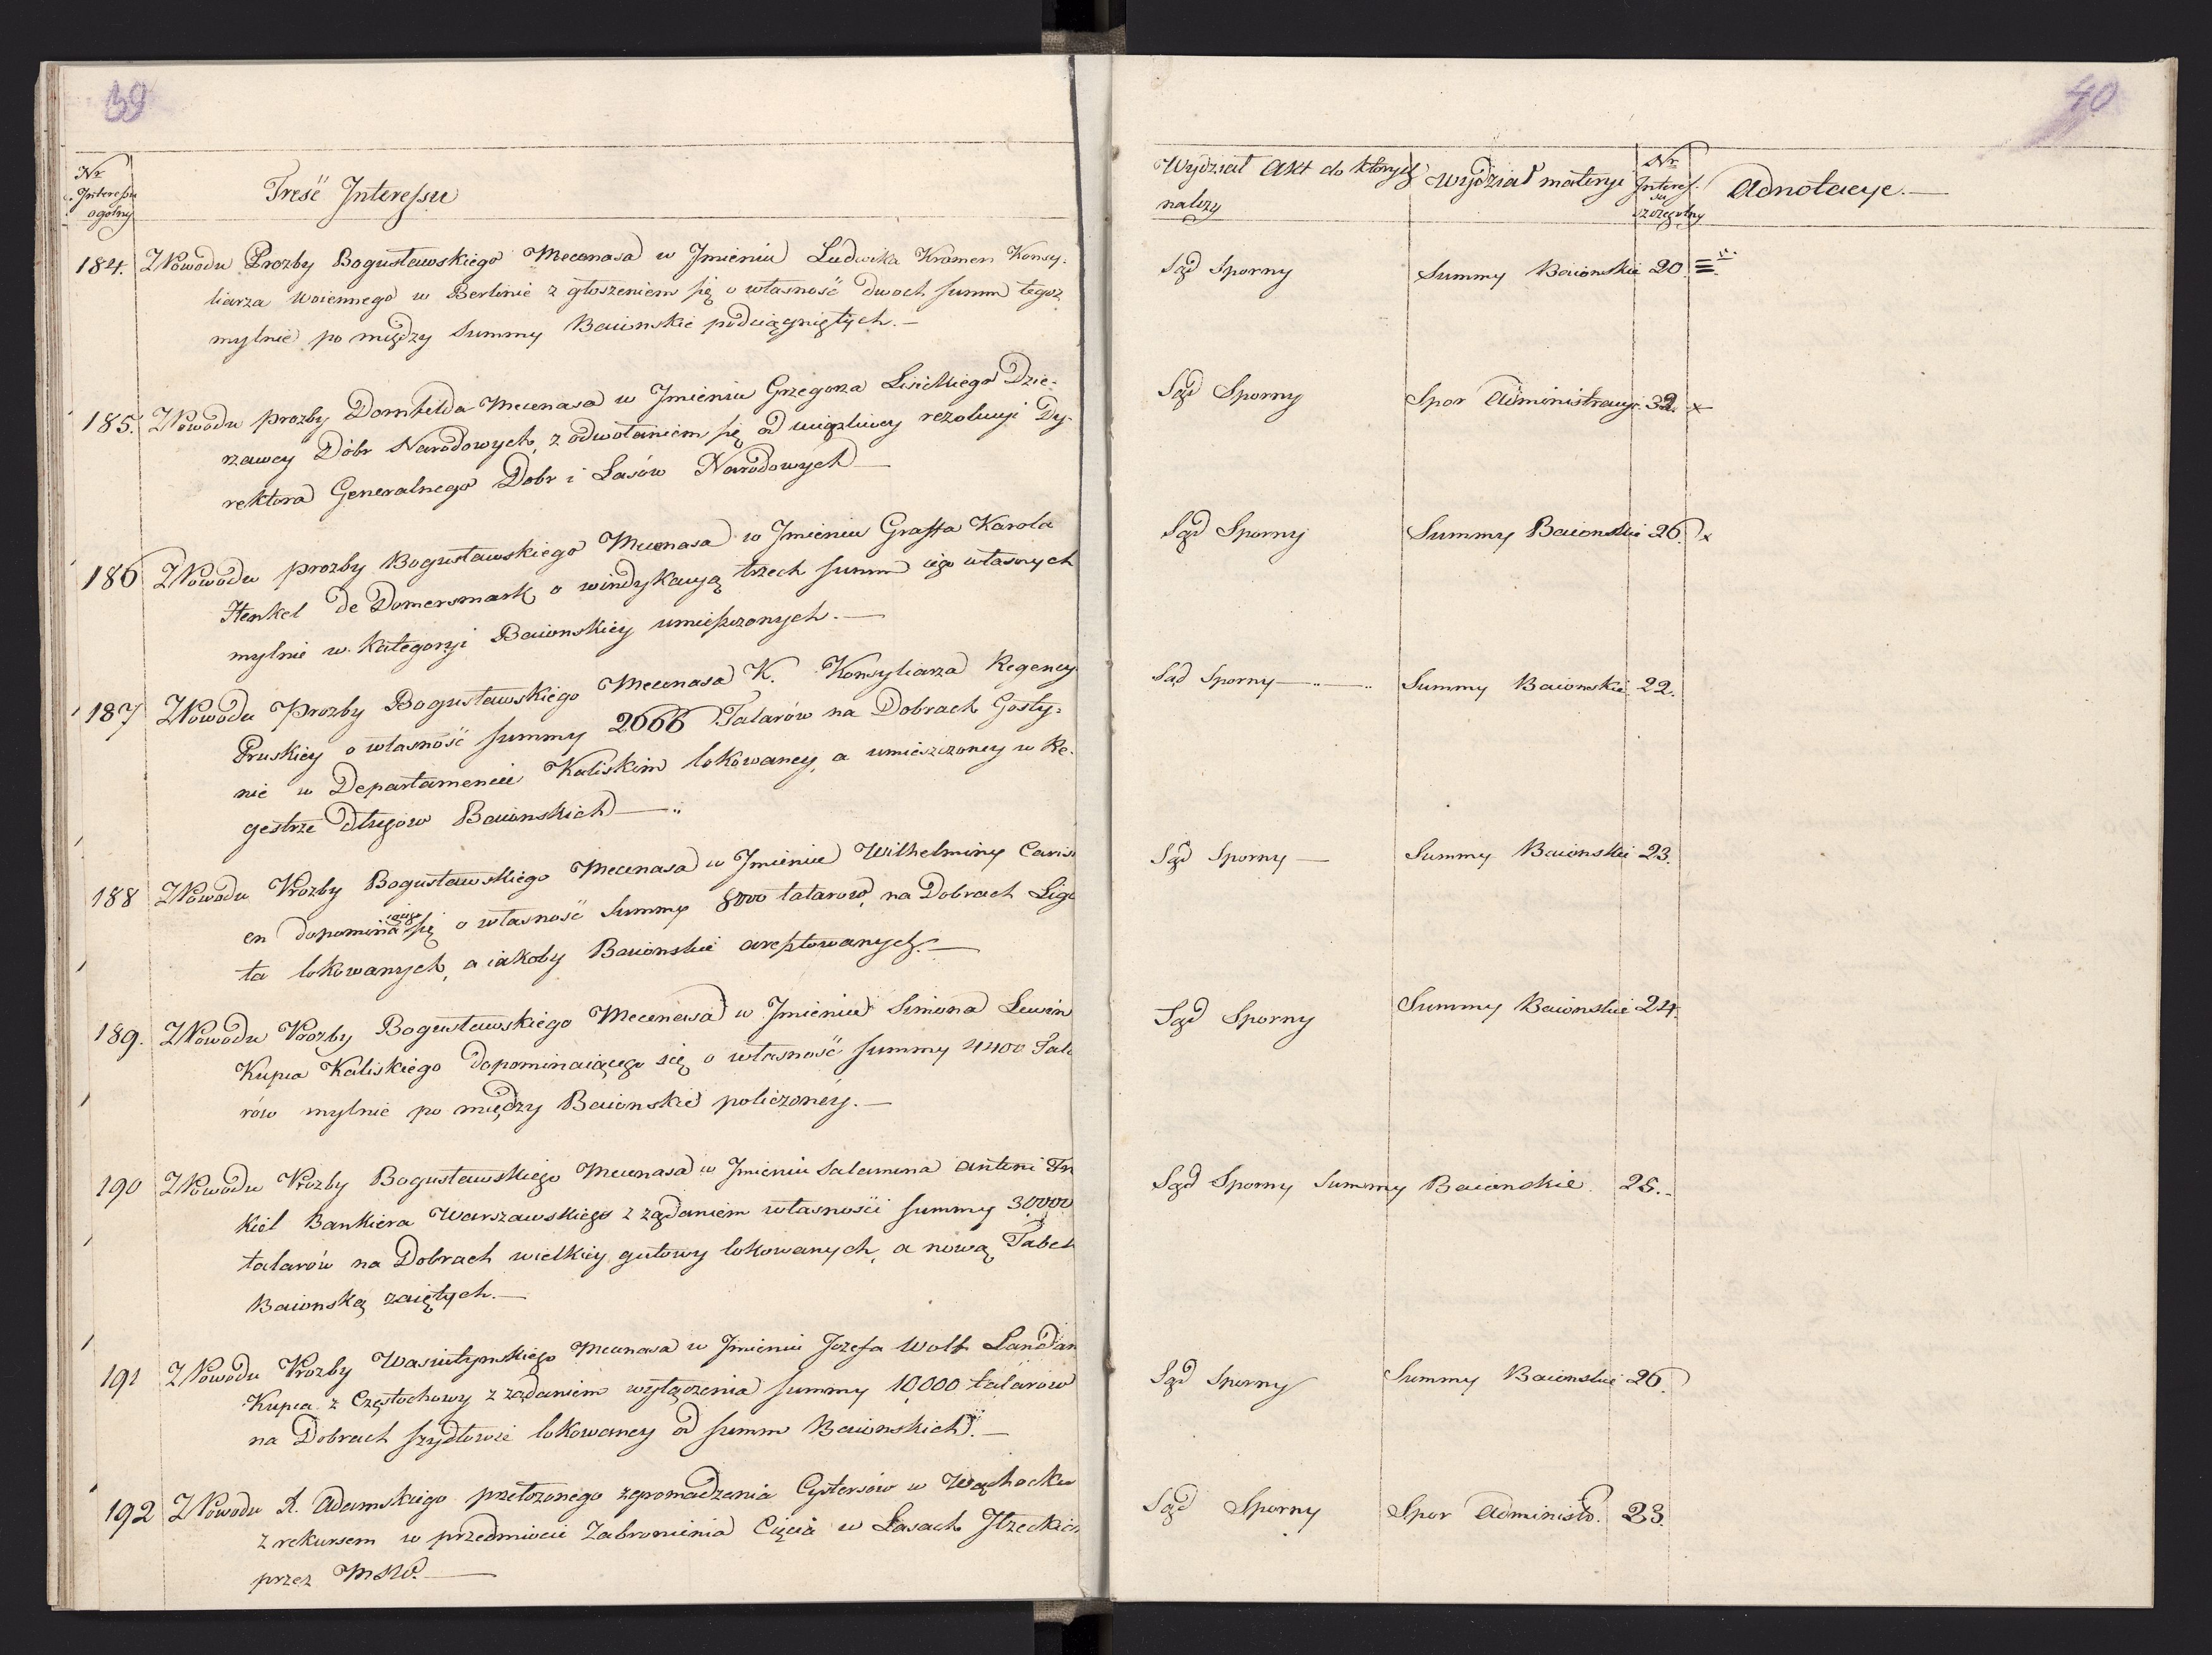 39
Nr Interessu ogolny
Treść Interessu
184. Z Powodu Prozby Bogusławskiego Mecenasa w Jmieniu Ludwika Kramen Konsy-
liarza woiennego w Berlinie z głoszeniem się o własność dwoch summ tegoż
mylnie po między Summy Baionskie podciągniętych. —
185. Z Powodu prozby Dornfelda Mecenasa w Jmieniu Grzegorza Lisickiego Dzie-
rzawcy Dóbr Narodowych, z odwołaniem się od uciązliwey rezolucyi Dy-
rektora Generalnego Dobr i Lasów Narodowych —
186 Z Powodu prozby Bogusławskiego Mecenasa w Jmieniu Graffa Karola
Henkel de Domersmark o windykacyą trzech summ iego własnych
mylnie w Kategoryi Baionskiey umieszczonych. —
187 Z Powodu Prozby Bogusławskiego Mecenasa K. Konsyliarza Regency
Pruskiey o własność summy 2666 Talarów na Dobrach Gosty-
nie w Departamencie Kaliskim lokowaney, a umiesczoney w Re-
gestrze długow Baionskich —
188 Z Powodu Prozby Bogusławskiego Mecenasa w Jmieniu Wilhelminy Caris
en dopominaiącey się o własność Summy 8000 talarow, na Dobrach Ligo
ta lokowanych, a iakoby Baionskie aresztowanych. —
189. Z Powodu Prozby Bogusławskiego Mecenasa w Jmieniu Simona Lewin
Kupca Kaliskiego dopominaiącego się o własność summy 4400 Tala
rów mylnie po między Baionskie policzoney. —
190 Z Powodu Prozby Bogusławskiego Mecenasa w Jmieniu Salamona Antoni Fr
kiel Bankiera Warszawskiego z ządaniem własności summy 30000
talarów na Dobrach wielkiey gutowy lokowanych, a nową Tabel
Baionską zaiętych. —
191 Z Powodu Prozby Wasiutynskiego Mecenasa w Jmieniu Jozefa Wolf Landau
Kupca z Częstochowy z ządaniem wyłączenia summy 10,000 talarow
na Dobrach szydłowie lokowaney od summ Baionskich. —
192 Z Powodu X. Adamskiego przełozonego zgromadzenia Cystersów w Wąchocku
z rekursem w przedmiocie Zabronienia Cięcia w Lasach Jłzeckich
przez MSW. —
40
Wydział Akt do ktorych nalezy
Wydział materyi
Nr Interessu szczegolny
Adnotacye. —
Sąd Sporny Summy Baionskie 20.
Sąd Sporny Spor Administracyi. 32. x
Sąd Sporny Summy Baionskie 26. x
Sąd Sporny — Summy Baionskie 22.
Sąd Sporny — Summy Baionskie 23.
Sąd Sporny Summy Baionskie 24.
Sąd Sporny Summy Baionskie 25. -
Sąd Sporny Summy Baionskie 26.
Sąd Sporny Spor Administr. 23.